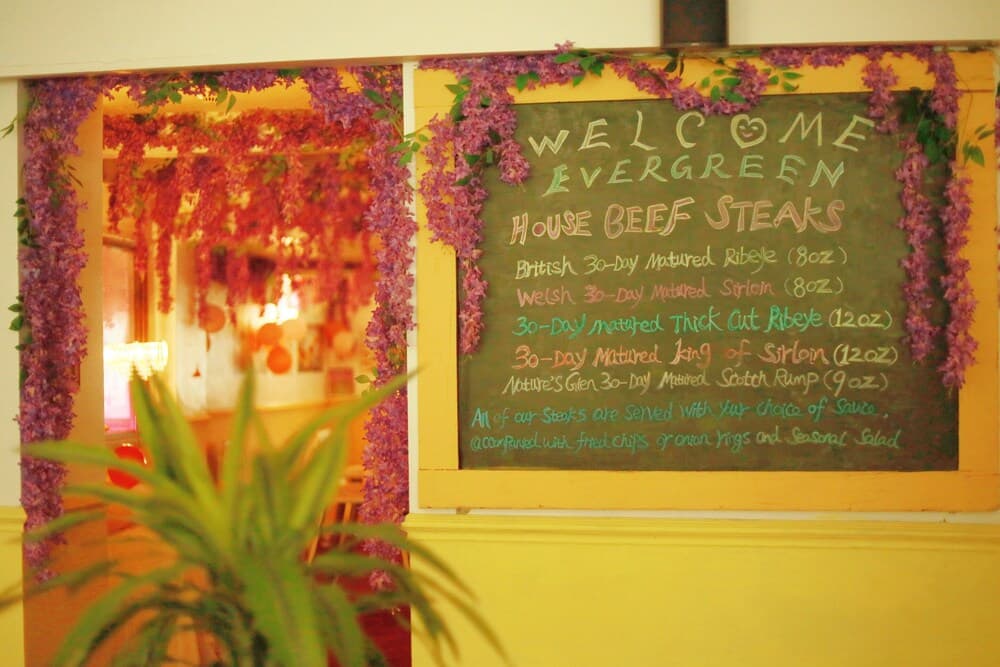 WELCOME
EVERGREEN
HOUSE BEEF STEAKS
British 30-Day Matured Ribeye (8oz)
Welsh 30-Day Matured Sirloin (8oz)
30-Day matured Thick Cut Ribeye (12oz)
30-Day Matured King of Sirloin (12oz)
Nature's Glen 30-Day Matured Scotch Rump (9oz)
All of our Steaks are served with your choice of Sauce.
with fried chips or onion rings and Seasonal Salad